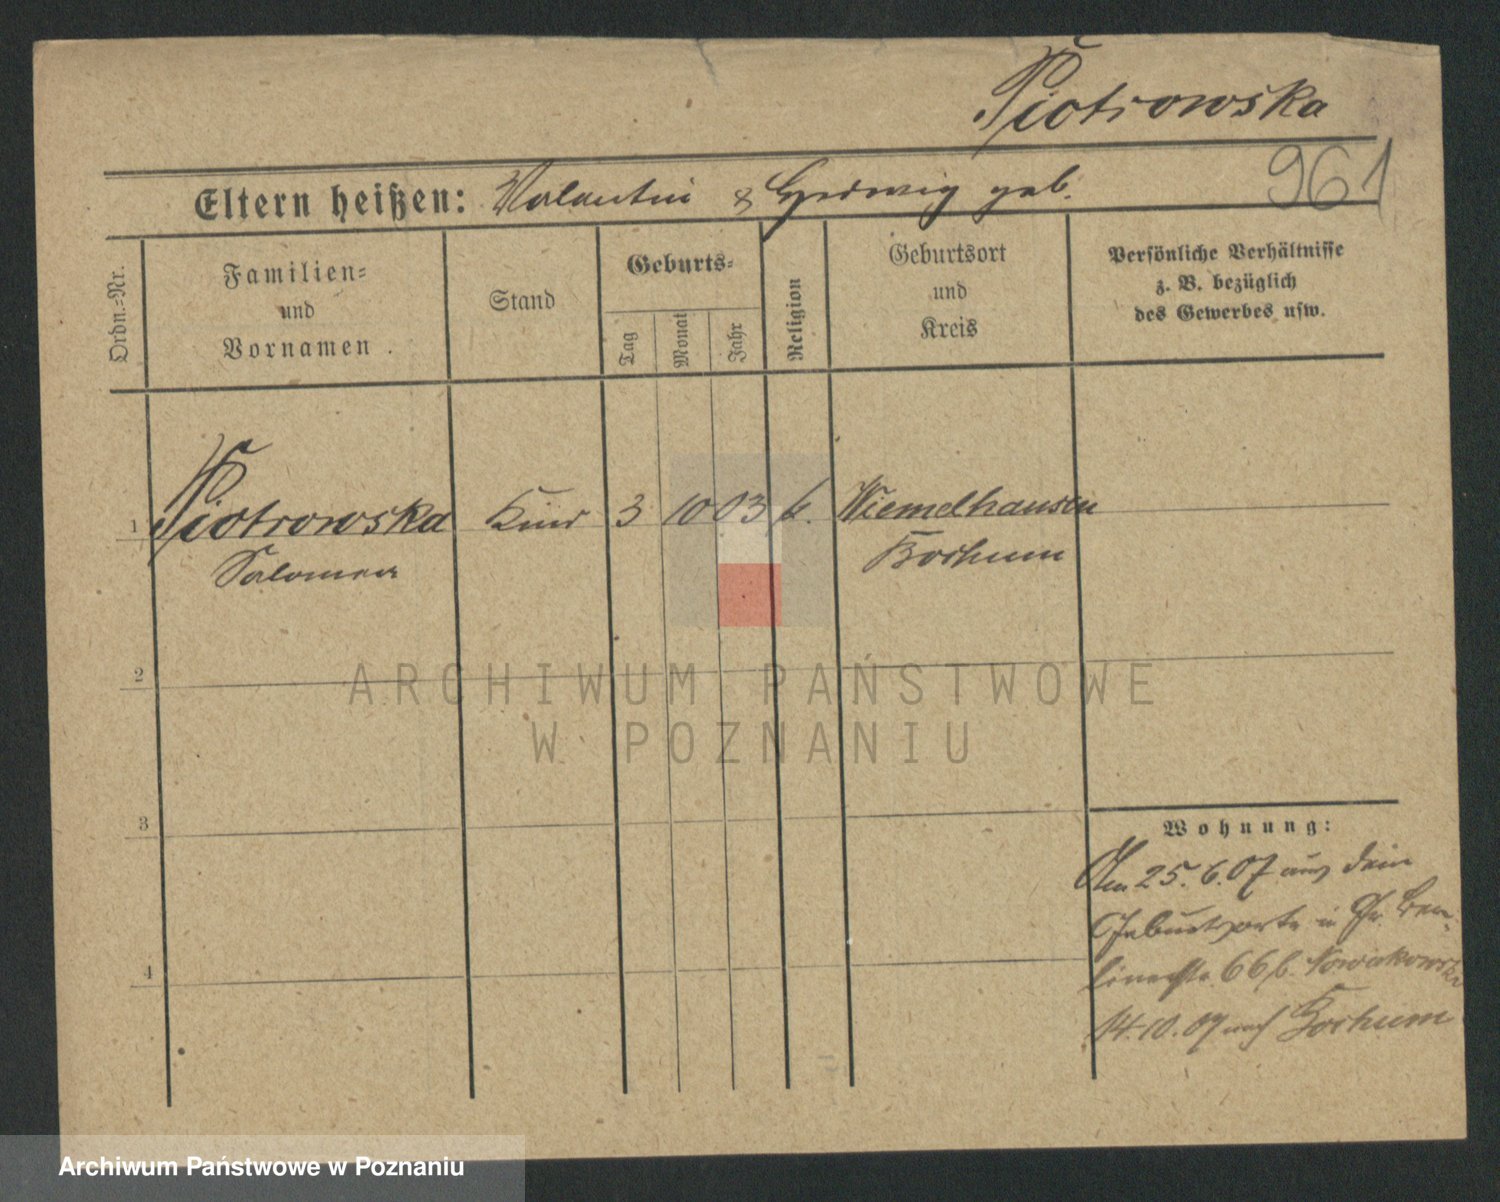 Piotrowska
961
Eltern heißen: Valentin & Hedwig geb.
Ordn.=Nr.
Familien=
und
Vornamen.
Stand
Geburts=
Tag
Monat
Jahr
Religion
Geburtsort
und
Kreis
Persönliche Verhältnisse
z. B. bezüglich
des Gewerbes usw.
1 Piotrowska Kind 3 10 03 k. Wiemelhausen
Salomea Bochum
2
3
4
Wohnung:
Am 25.6.07 aus dem
Geburtsorte in Gr. Ber-
linerstr. 66 b. Nowakowski
14.10.07 nach Bochum
ARCHIWUM PAŃSTWOWE
W POZNANIU
Archiwum Państwowe w Poznaniu